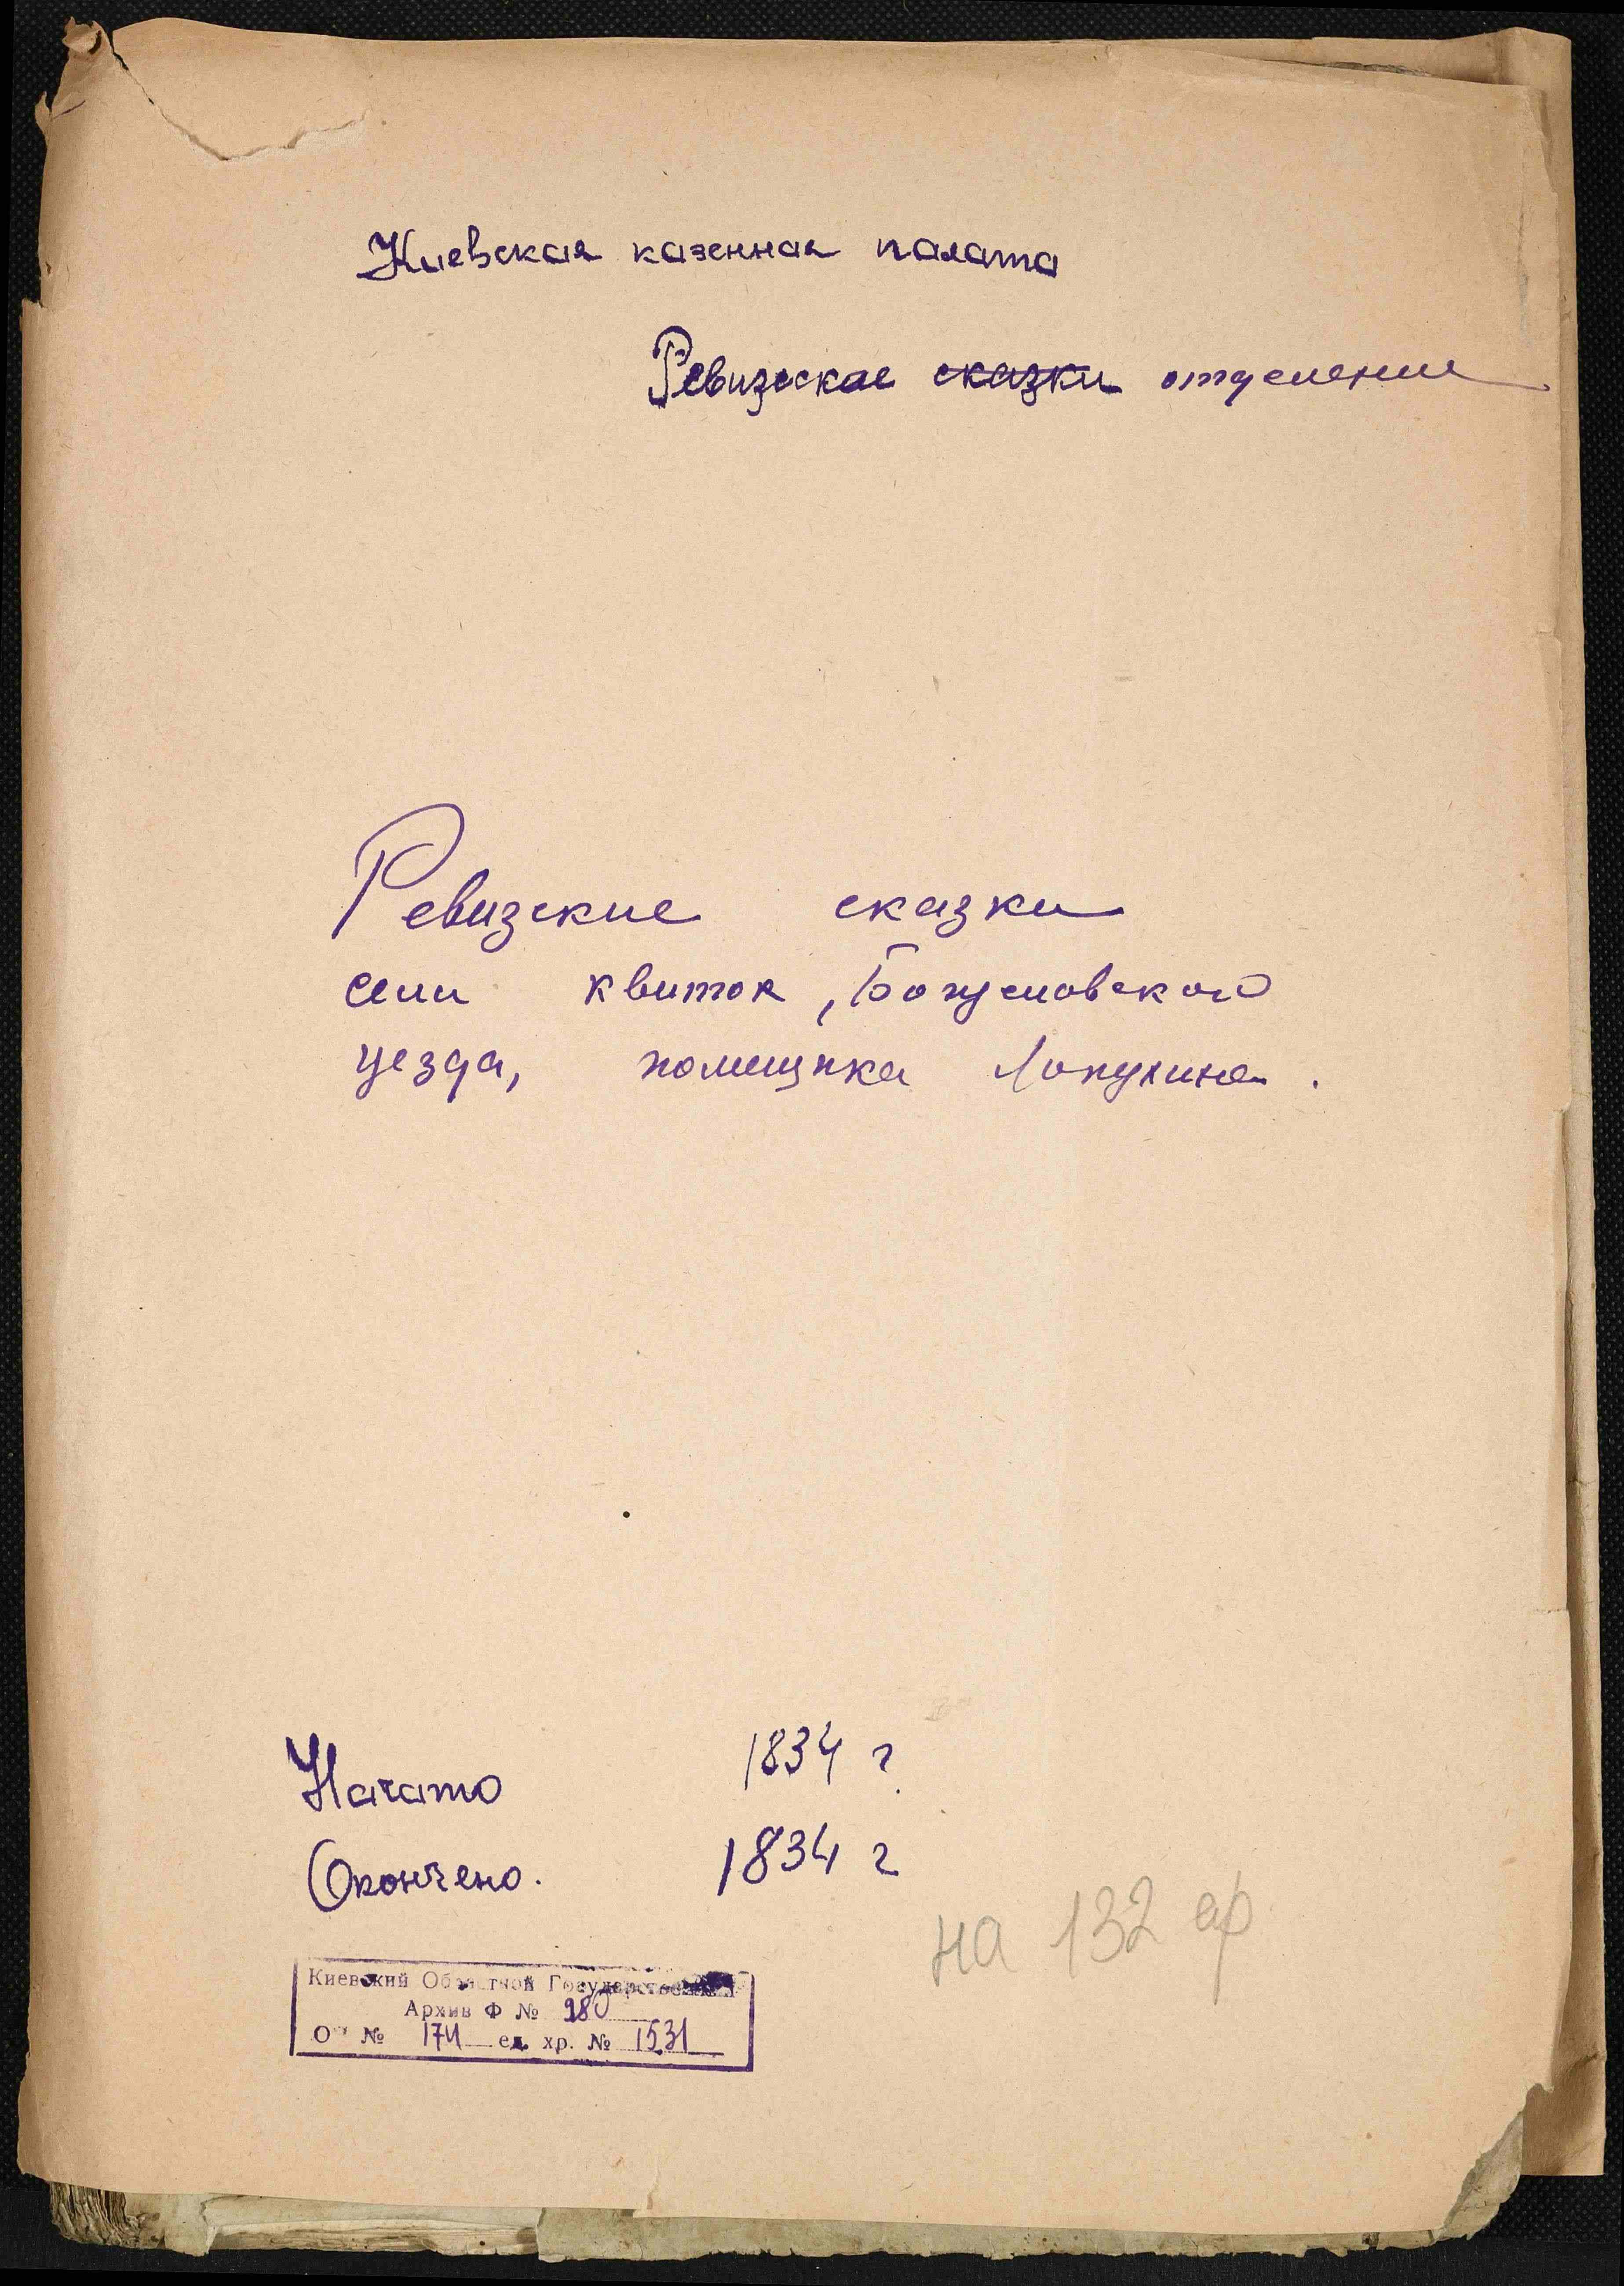 Киевская казенная палата
Ревизское сказки отделение
Ревизские сказки
сели Квиток, Богуславского
уезда, помещика Лопухина.
Начато 1834 г.
Окончено. 1834 г
на 132 ар
Киевский Областной Государственный
Архив Ф № 280
О № 174 ед. хр. № 1531